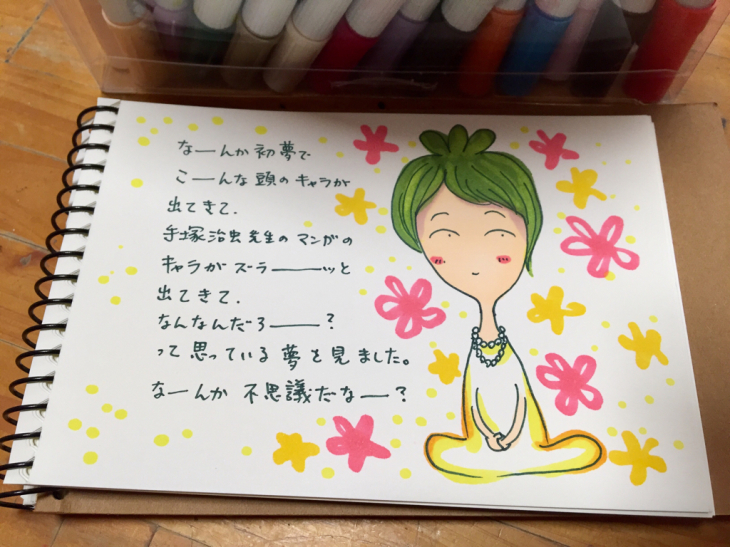 なーんか初夢で
こーんな頭のキャラが
出てきて.
手塚治虫先生のマンガの
キャラがズラーーーッと
出てきて.
なんなんだろーーー?
って思っている夢を見ました。
なーんか不思議だなー?